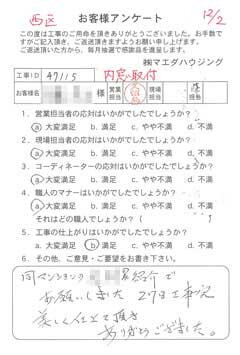 西区
お客様アンケート
12/2
この度は工事のご用命を頂きありがとうございました。お手数で
すがご記入頂き、ご返送頂きますようお願い申し上げます。
ご返送頂いた方から、毎月抽選で感謝品を進呈します。
㈱マエダハウジング
工事ID 49115 内窓取付
お客様名 様 営業担当 現場担当
1. 営業担当者の応対はいかがでしたでしょうか?
a. 大変満足 b. 満足 c. やや不満 d. 不満
2. 現場担当者の応対はいかがでしたでしょうか?
a. 大変満足 b. 満足 c. やや不満 d. 不満
3. コーディネーターの応対はいかがでしたでしょうか?
a. 大変満足 b. 満足 c. やや不満 d. 不満
4. 職人のマナーはいかがでしたでしょうか?
a. 大変満足 b. 満足 c. やや不満 d. 不満
それはどの職人でしょうか? (
5. 工事の仕上がりはいかがでしたでしょうか?
a. 大変満足 b. 満足 c. やや不満 d. 不満
6. その他、ご意見・ご要望をお書き下さい。
同マンションの 紹介で
お願いしました
美しく仕上て頂き
ありがとうございました。